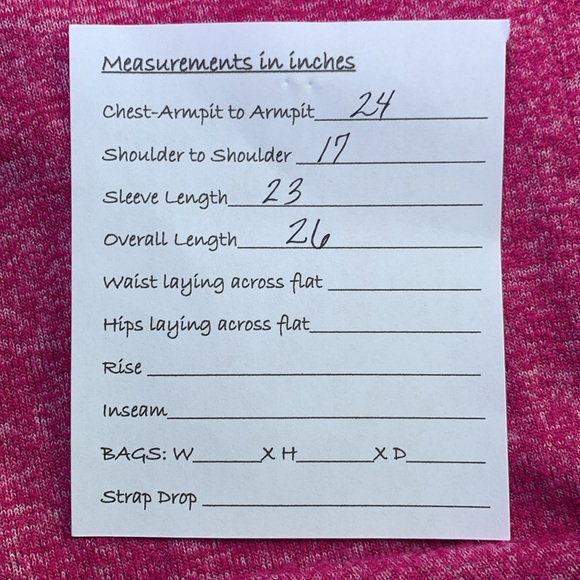 Measurements in inches
Chest-Armpit to Armpit 24
Shoulder to Shoulder 17
Sleeve Length 23
Overall Length 26
Waist laying across flat
Hips laying across flat
Rise
Inseam
BAGS: W______X H______X D______
Strap Drop